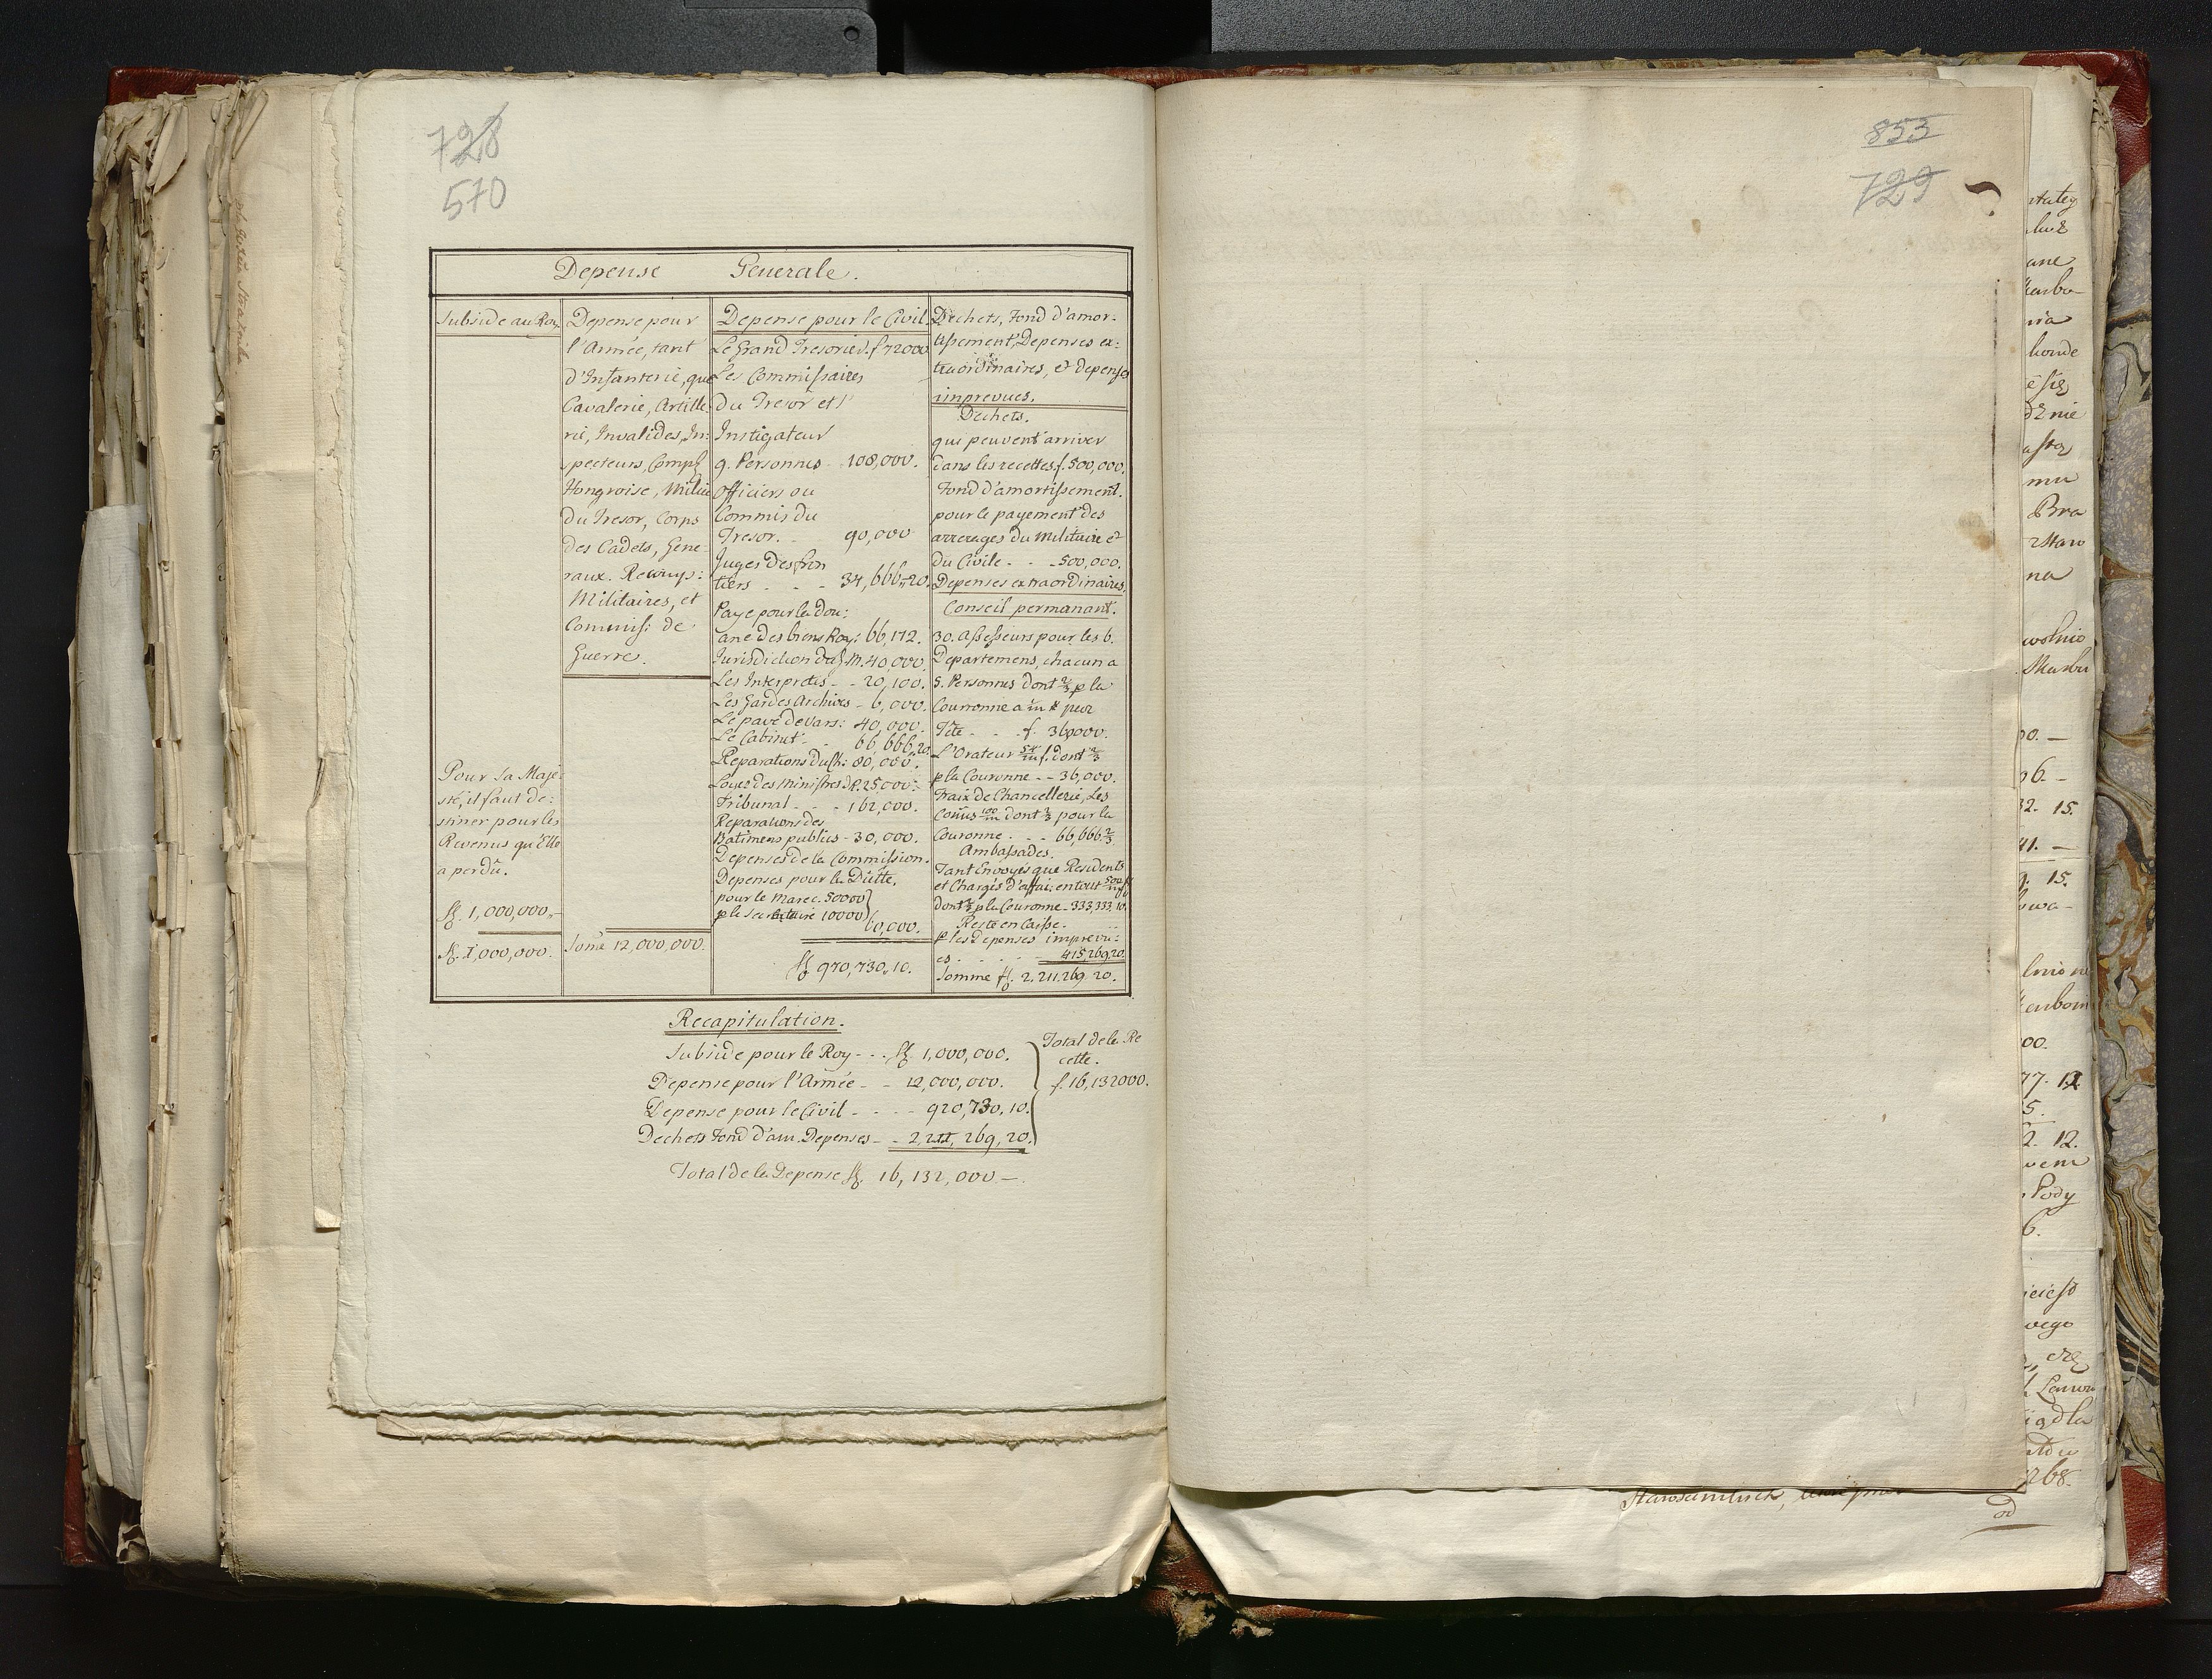 728
570
Depense Generale.
Subside au Roy
Pour Sa Maje:
sté, il faut de:
stiner pour les
Revenus qu'Elle
a perdû.
fl. 1,000,000,-
fl. 1,000,000.
Depense pour
l'Armée, tant
d'Infanterie, que
Cavalerie, Artille
rie, Invalides, In:
specteurs, Comp:
Hongroise, Milice
du Tresor, Corps
des Cadets, Gene
raux.
Militaires, et
Commiss: de
Guerre.
Somē 12,000,000.
Depense pour le Civil
Le Grand Tresorier. f 72000
Les Commissaires
du Tresor et l'
Instigateur
9. Personnes - 108,000.
Officiers ou
Commis du
Tresor. - 90,000
Juges des fron
tiers - - 34,666,,20.
Paye pour la dou:
ane des biens Roy: 66,172.
Jurisdiction du M. 40,000.
Les Interpretes - - 20,100.
Les Gardes Archives - 6,000.
Le pavé de Vars: 40,000.
Le Cabinet - 66,666,20
Reparations du Ch: 80,000.
Loyer des Ministres d R. 25,000:
Tribunal - - - 162,000.
Reparations des
Batimens publics - 30,000.
Depenses de la Commission.
Depenses pour la Diètte.
pour le Marec. 50000
p le Secretaire 10000
60,000.
fl 970,730,,10.
Dechets, Fond d'amor-
tissement, Depenses ex:
traordinaires, et depenses
imprevues.
Dechets.
qui peuvent arriver
dans les recettes f. 500,000.
Fond d'amortissement.
pour le payement des
arrerages du Militaire et
du Civile - - - 500,000.
Depenses extraordinaires.
Conseil permanant.
30. Assesseurs pour les 6.
Departemens, chacun a
5. Personnes dont 2/3 p la
Couronne a par
Tête - - - f. 36000.
L'Orateur 54/m f. dont 2/3
p la Couronne - - 36,000.
Fraix de Chancellerie, Les
Coûus 100/m dont 2/3 pour la
Couronne - - - 66,666 2/3
Ambassades.
Tant Envoyés que Residents
et Chargés d'affai: en tout 500/m f
dont 2/3 p la Couronne - 333,333,10.
Reste en Caisse.
p les Depenses imprevu:
es - - - 415,269,20.
Somme fl. 2,211,269,20.
Recapitulation.
Subside pour le Roy - - - fl. 1,000,000.
Depense pour l'Armée - - 12,000,000.
Depense pour le Civil - - - - 920,730,10.
Dechets Fond d'am. Depenses - - 2,211,269,20.
Total de la Re
cette.
f. 16,132000.
Total de la Depense fl. 16,132,000-.
853
729
ane
honde
Bra
na
00.-
06.-
32. 15.
41. -
9. 15.
00.
77. 12
5.
2. 12.
Pody
6.
268.